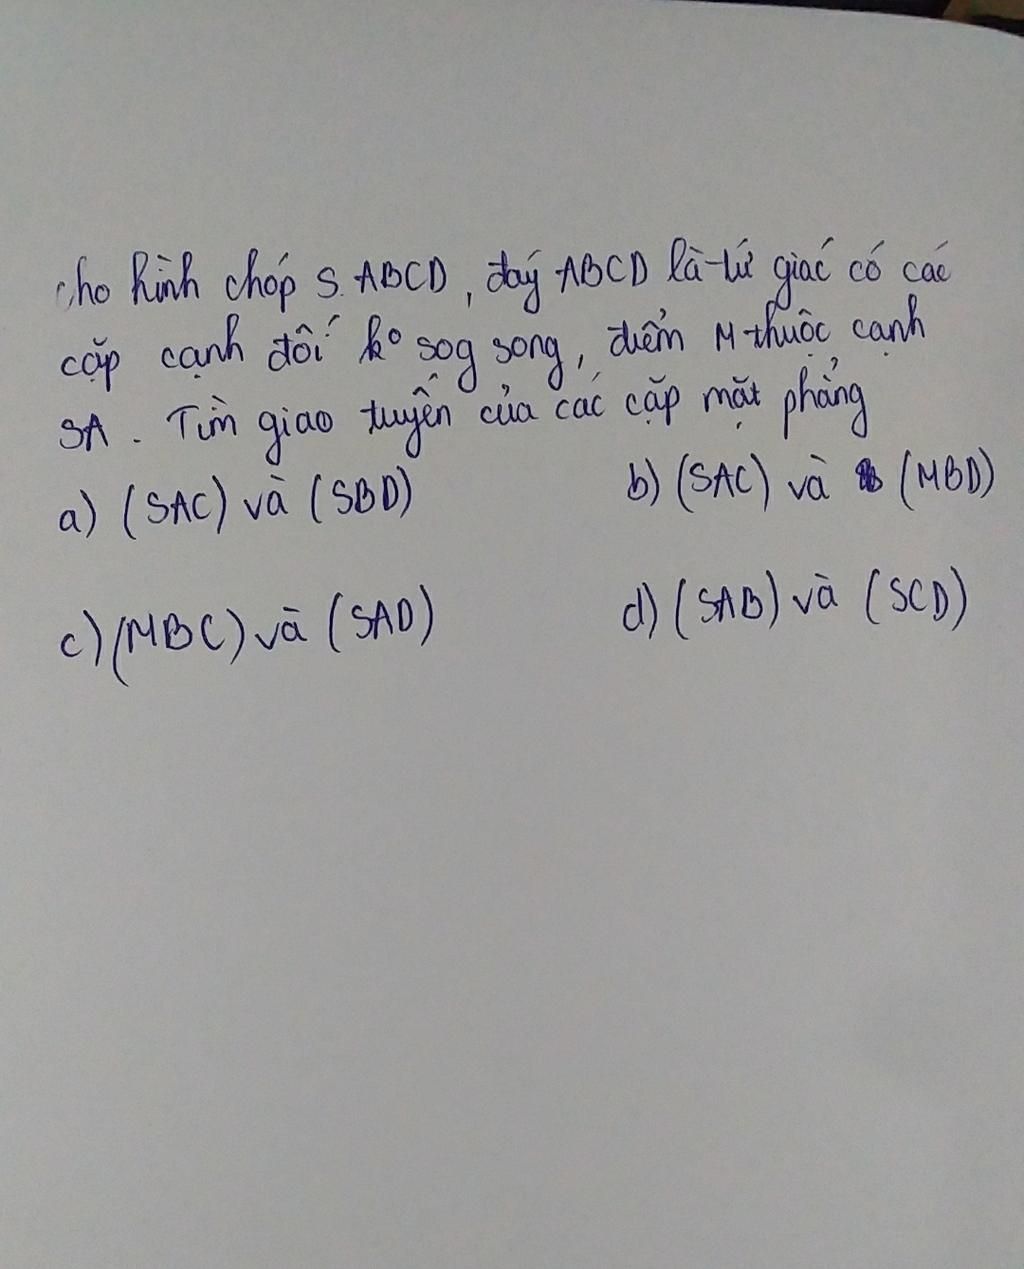 Cho hình chóp S.ABCD, đáy ABCD là tứ giác có các
cặp cạnh đối ko sog song, điểm M thuộc cạnh
SA. Tìm giao tuyến của các cặp mặt phẳng
a) (SAC) và (SBD) b) (SAC) và (MBD)
c) (MBC) và (SAD) d) (SAB) và (SCD)